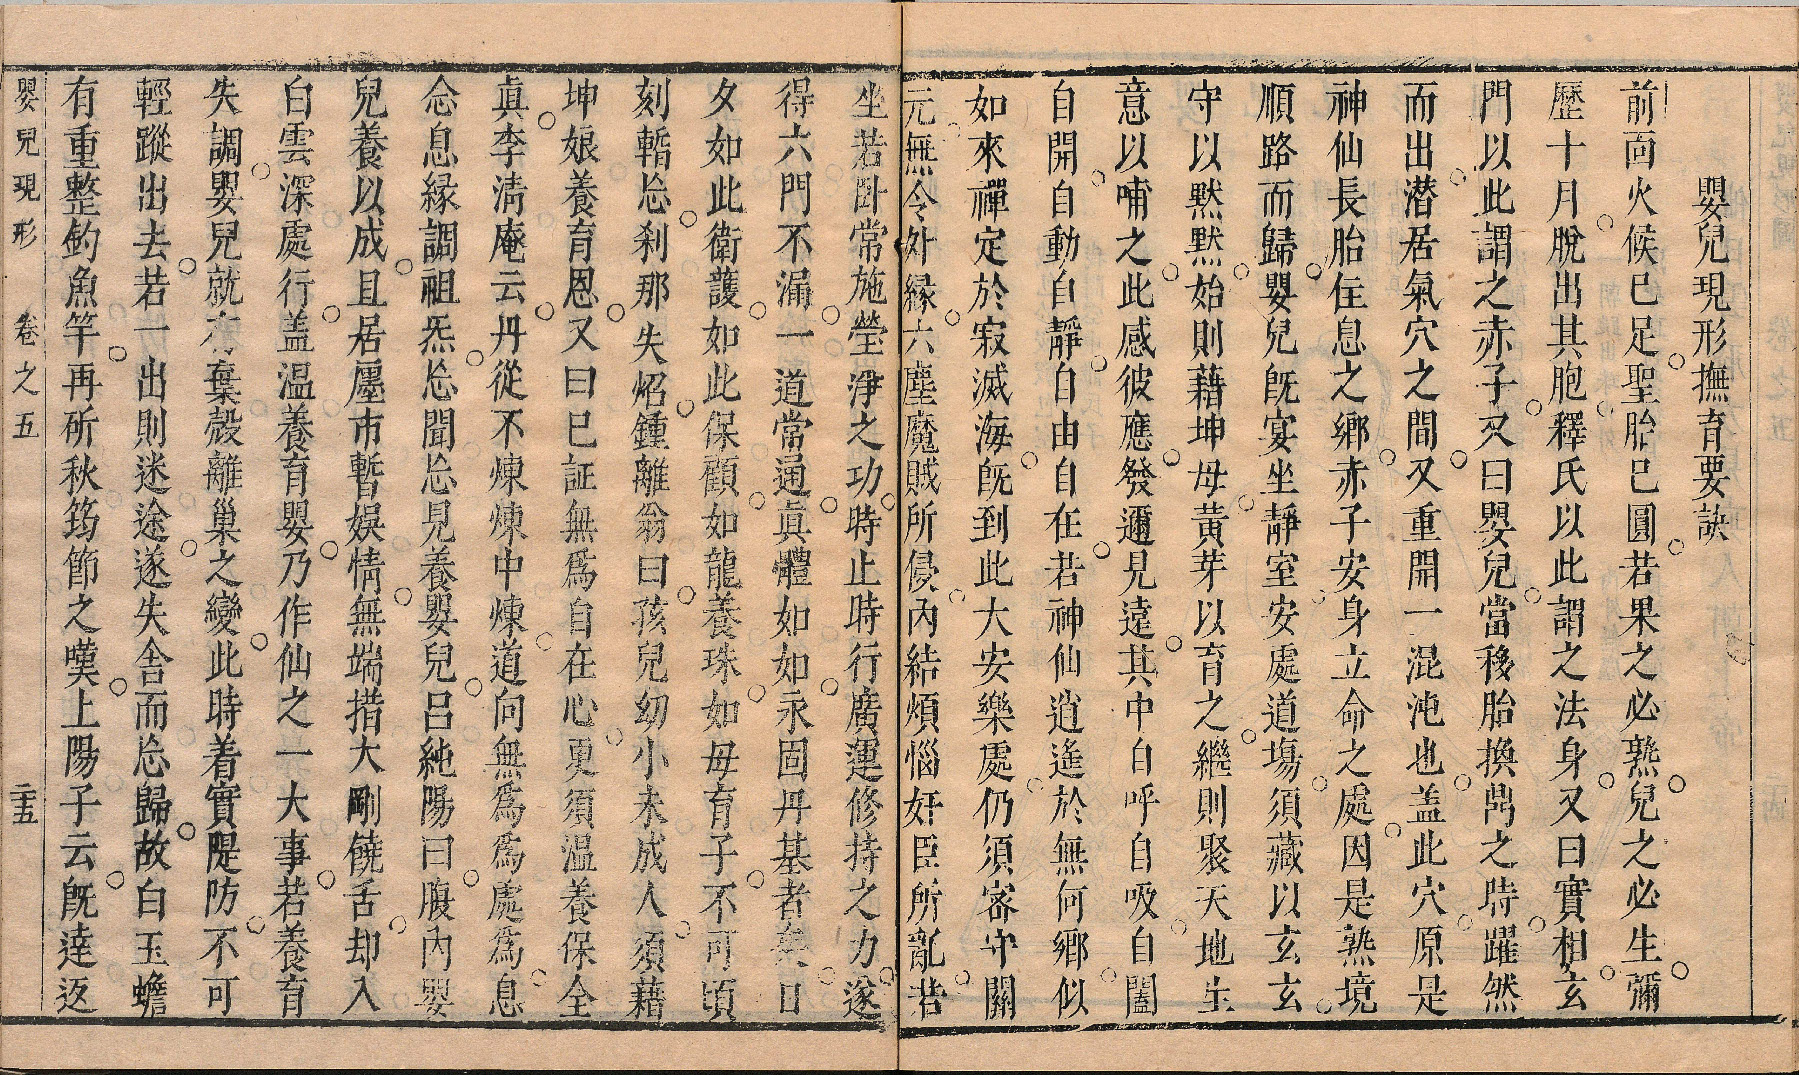 嬰兒現形撫育要訣
前面火候已足聖胎已圓若果之必熟兒之必生彌
歷十月脫出其胞釋氏以此謂之法身又曰實相玄
門以此謂之赤子又曰嬰兒當移胎換鼎之時躍然
而出潛居氣穴之間又重開一混沌也盖此穴原是
神仙長胎住息之鄉赤子安身立命之處因是熟境
順路而歸嬰兒旣宴坐靜室安處道場須藏以玄玄
守以默默始則藉坤母黃芽以育之繼則聚天地生
意以哺之此感彼應發邇見遠其中自呼自吸自闔
自開自動自靜自由自在若神仙逍遙於無何鄉似
如來禪定於寂滅海旣到此大安樂處仍須密守關
元無令外緣六塵魔賊所侵內結煩惱奸臣所亂若
坐若卧常施瑩淨之功時止時行廣運修持之力遂
得六門不漏一道常通眞體如如永固丹基者矣日
夕如此衛護如此保顧如龍養珠如母育子不可頃
刻暫忘剎那失炤鍾離翁曰孩兒幼小未成人須藉
坤娘養育恩又曰已証無爲自在心更須溫養保全
眞李淸庵云丹從不煉煉中煉道向無爲爲處爲息
念息緣調祖炁忘聞忘見養嬰兒吕純陽曰腹內嬰
兒養以成且居廛市暫娛情無端措大剛饒舌却入
白雲深處行盖温養育嬰乃作仙之一大事若養育
失調嬰兒就有棄殼離巢之變此時着實隄防不可
輕蹤出去若一出則迷途遂失舍而忘歸故白玉蟾
有重整釣魚竿再斫秋筠節之嘆上陽子云旣達返
嬰兒現形 卷之五 二十五